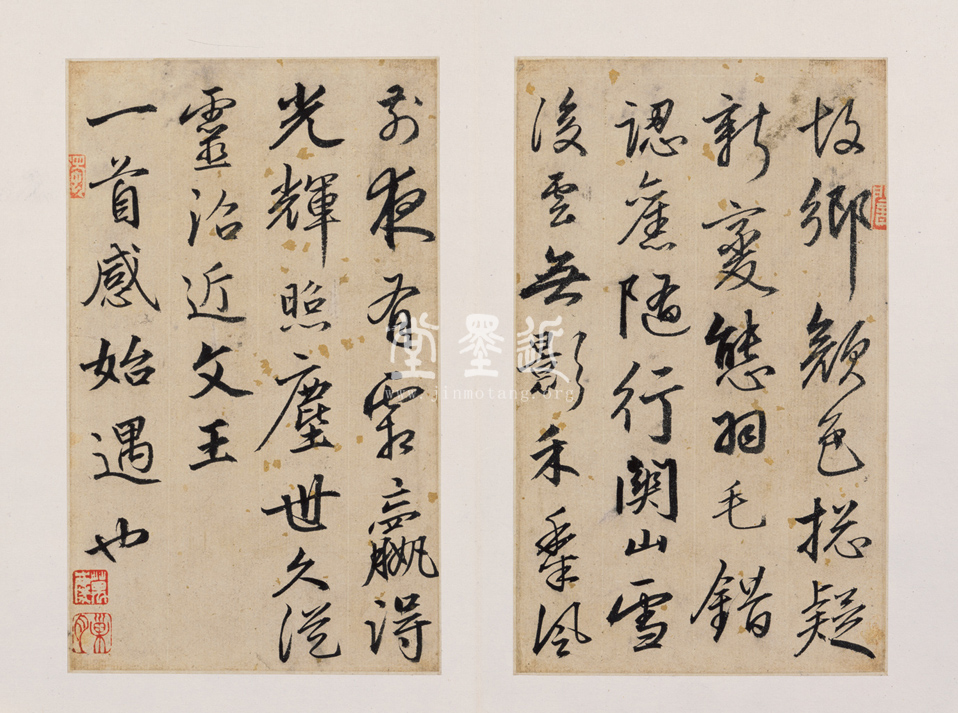 故鄉顏色揔疑
新變態羽毛錯
認舊隨行關山雪
後雲無影禾黍風
前夜有霜嬴得
光輝照塵世久從
靈沼近文王
一首感始遇也
近墨堂
www.jinmotang.org